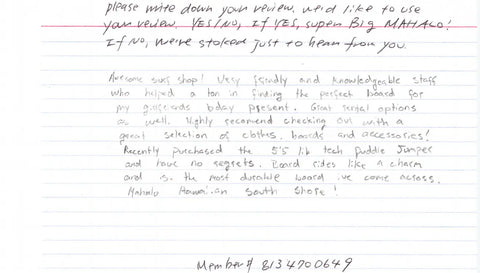 please write down your review. we'd like to use
your review. YES/NO, If YES, super Big MAHALO!
If NO, we're stoked just to hear from you.
Awesome surf shop! Very friendly and knowledgeable staff
who helped a ton in finding the perfect board for
my girlfriends bday present. Great rental options
as well. Highly recomend checking out with a
great selection of clothes, boards and accessories!
Recently purchased the 5'5 lib tech puddle jumper
and have no regrets. Board rides like a charm
and is the most durable board ive come across.
Mahalo Hawaiian South Shore!
Member# 8134700649